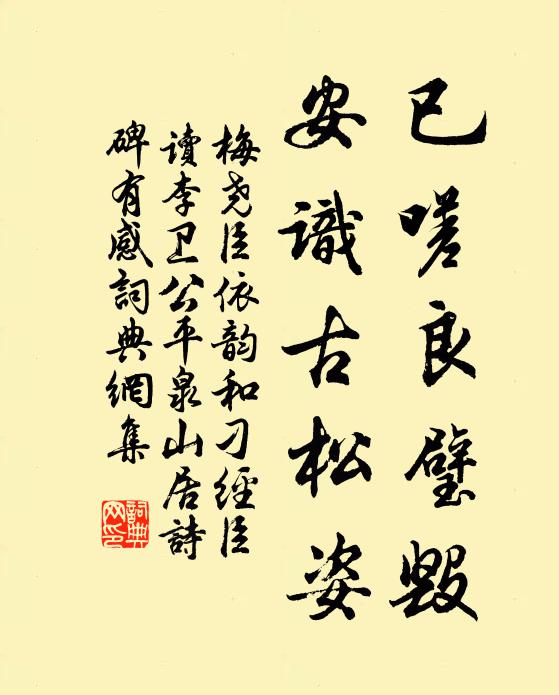 已嗟良璧毀
安識古松姿
梅尧臣依韵和刁經臣
讀李卫公平泉山居詩
碑有感詞典網集
詞典
网印